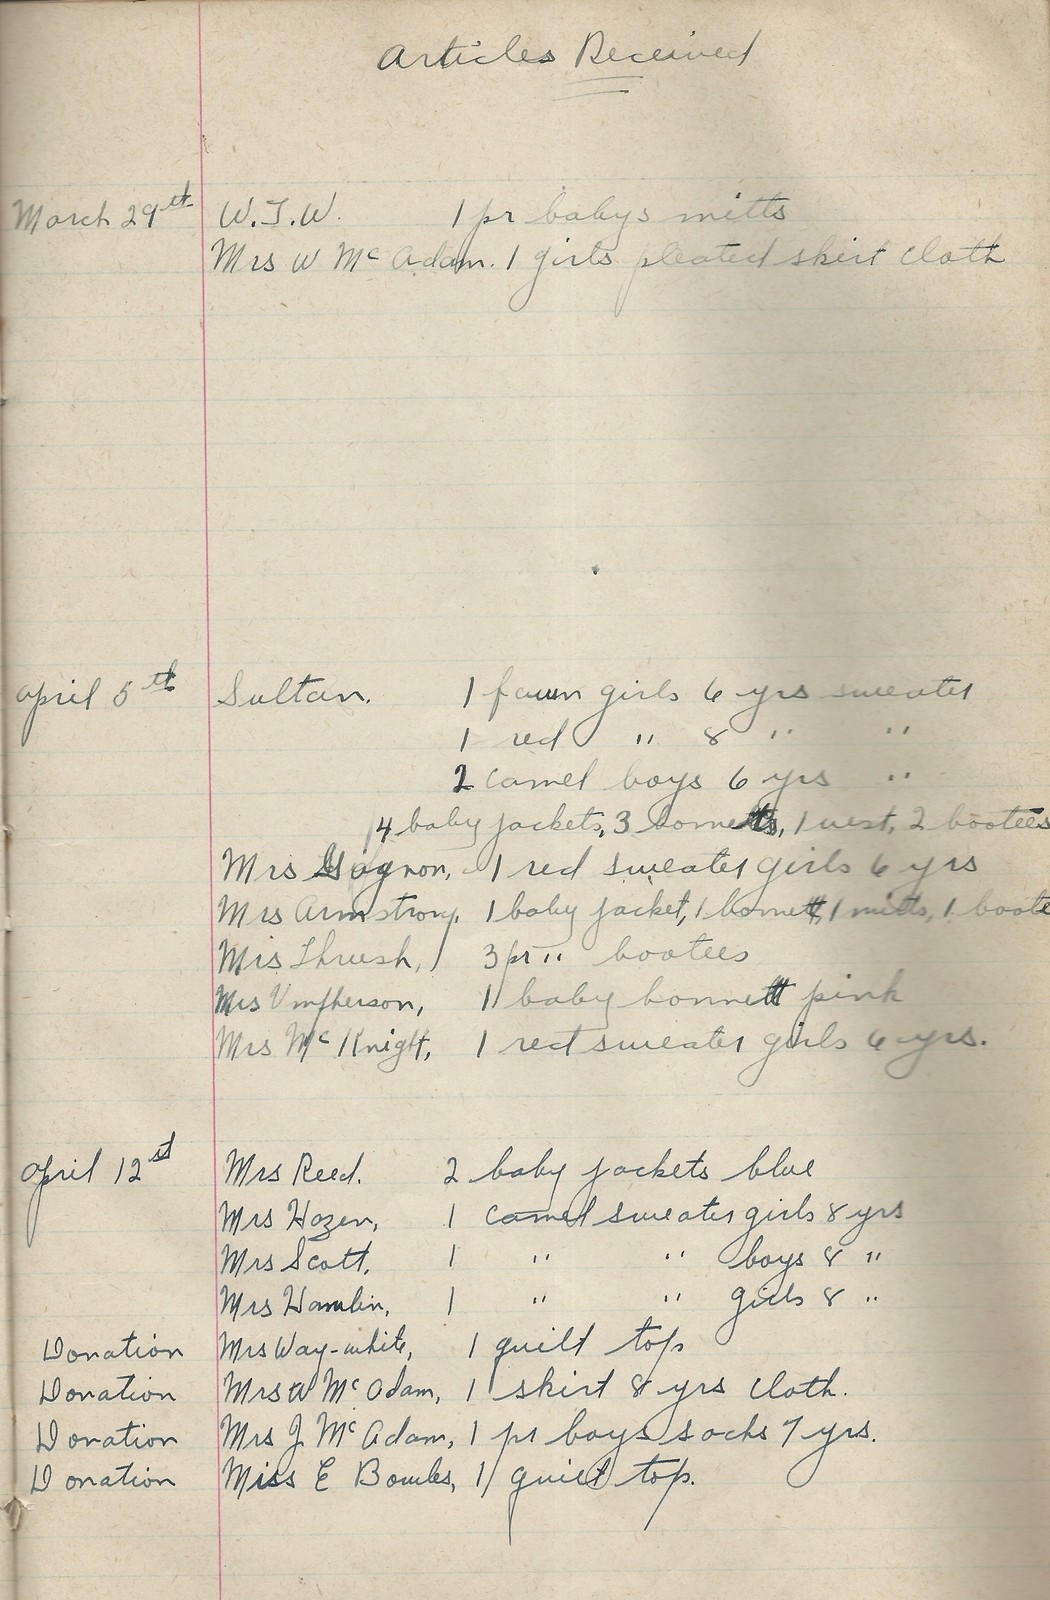 Articles Received
March 29th W.I.W. 1 pr babys mitts
Mrs W McAdam. 1 girls pleated skirt cloth
April 5th Sultan. 1 fawn girls 6 yrs sweater
1 red " 8 " "
2 camel boys 6 yrs "
4 baby jackets, 3 bonnetts, 1 vest, 2 bootees
Mrs Gagnon, 1 red sweater girls 6 yrs
Mrs Armstrong, 1 baby jacket, 1 bonnett, 1 mitts, 1 boote
Mrs Thrush, 3 pr " bootees
Mrs 1 baby bonnett pink
Mrs McKnight, 1 red sweater girls 6 yrs.
April 12st Mrs Reed. 2 baby jackets blue
Mrs Hazen, 1 camel sweater girls 8 yrs
Mrs Scott, 1 " " boys 8 "
Mrs Hamlin, 1 " " girls 8 "
Donation Mrs Way-white, 1 quilt top
Donation Mrs W McAdam, 1 skirt 8 yrs cloth.
Donation Mrs J McAdam, 1 pr boys socks 7 yrs.
Donation Miss E Bowles, 1 quilt top.